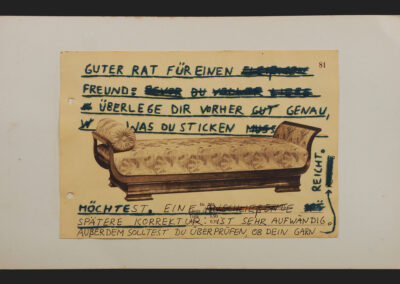 GUTER RAT FÜR EINEN
81
FREUND:
ÜBERLEGE DIR VORHER GUT GENAU,
WAS DU STICKEN
MÖCHTEST. EINE
SPÄTERE KORREKTUR IST SEHR AUFWÄNDIG.
AUßERDEM SOLLTEST DU ÜBERPRÜFEN, OB DEIN GARN
REICHT.